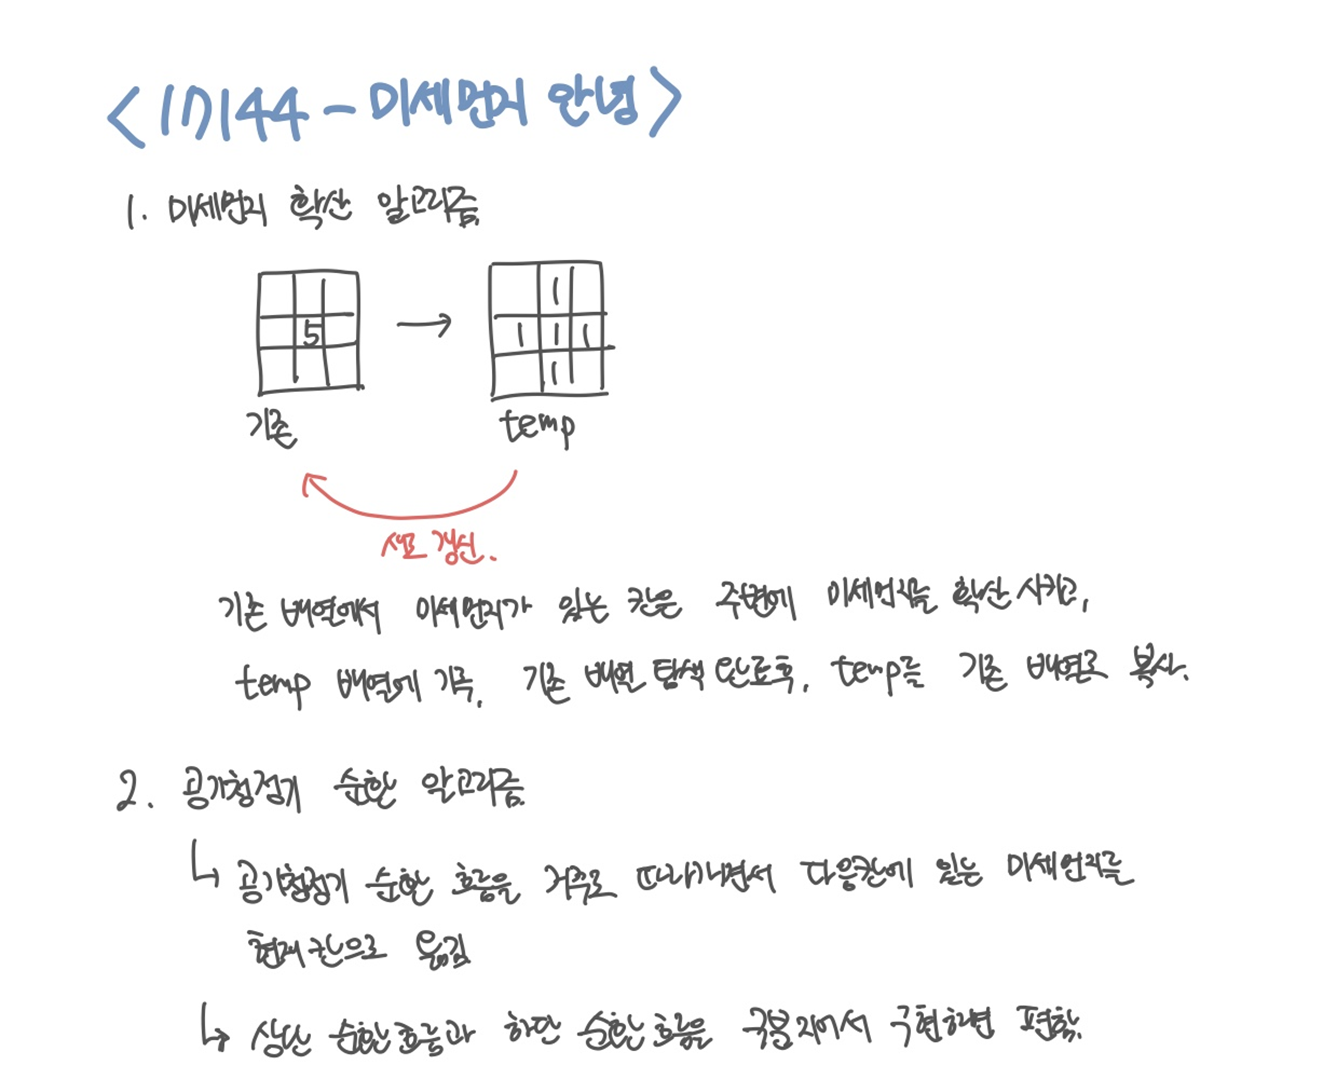 <17144 - 미세먼지 안녕>
1. 미세먼지 확산 알고리즘
5
1
1 1 1
1
기존
temp
새로 갱신.
기존 배열에서 미세먼지가 있는 칸은 주변에 미세먼지를 확산 시키고,
temp 배열에 기록. 기존 배열 탐색 완료후, temp를 기존 배열로 복사.
2. 공기청정기 순환 알고리즘
↳ 공기청정기 순환 흐름을 거꾸로 따라가면서 다음칸에 있는 미세먼지를
현재 칸으로 옮김
↳ 상단 순환흐름과 하단 순환 흐름을 구분지어서 구현하면 편함.